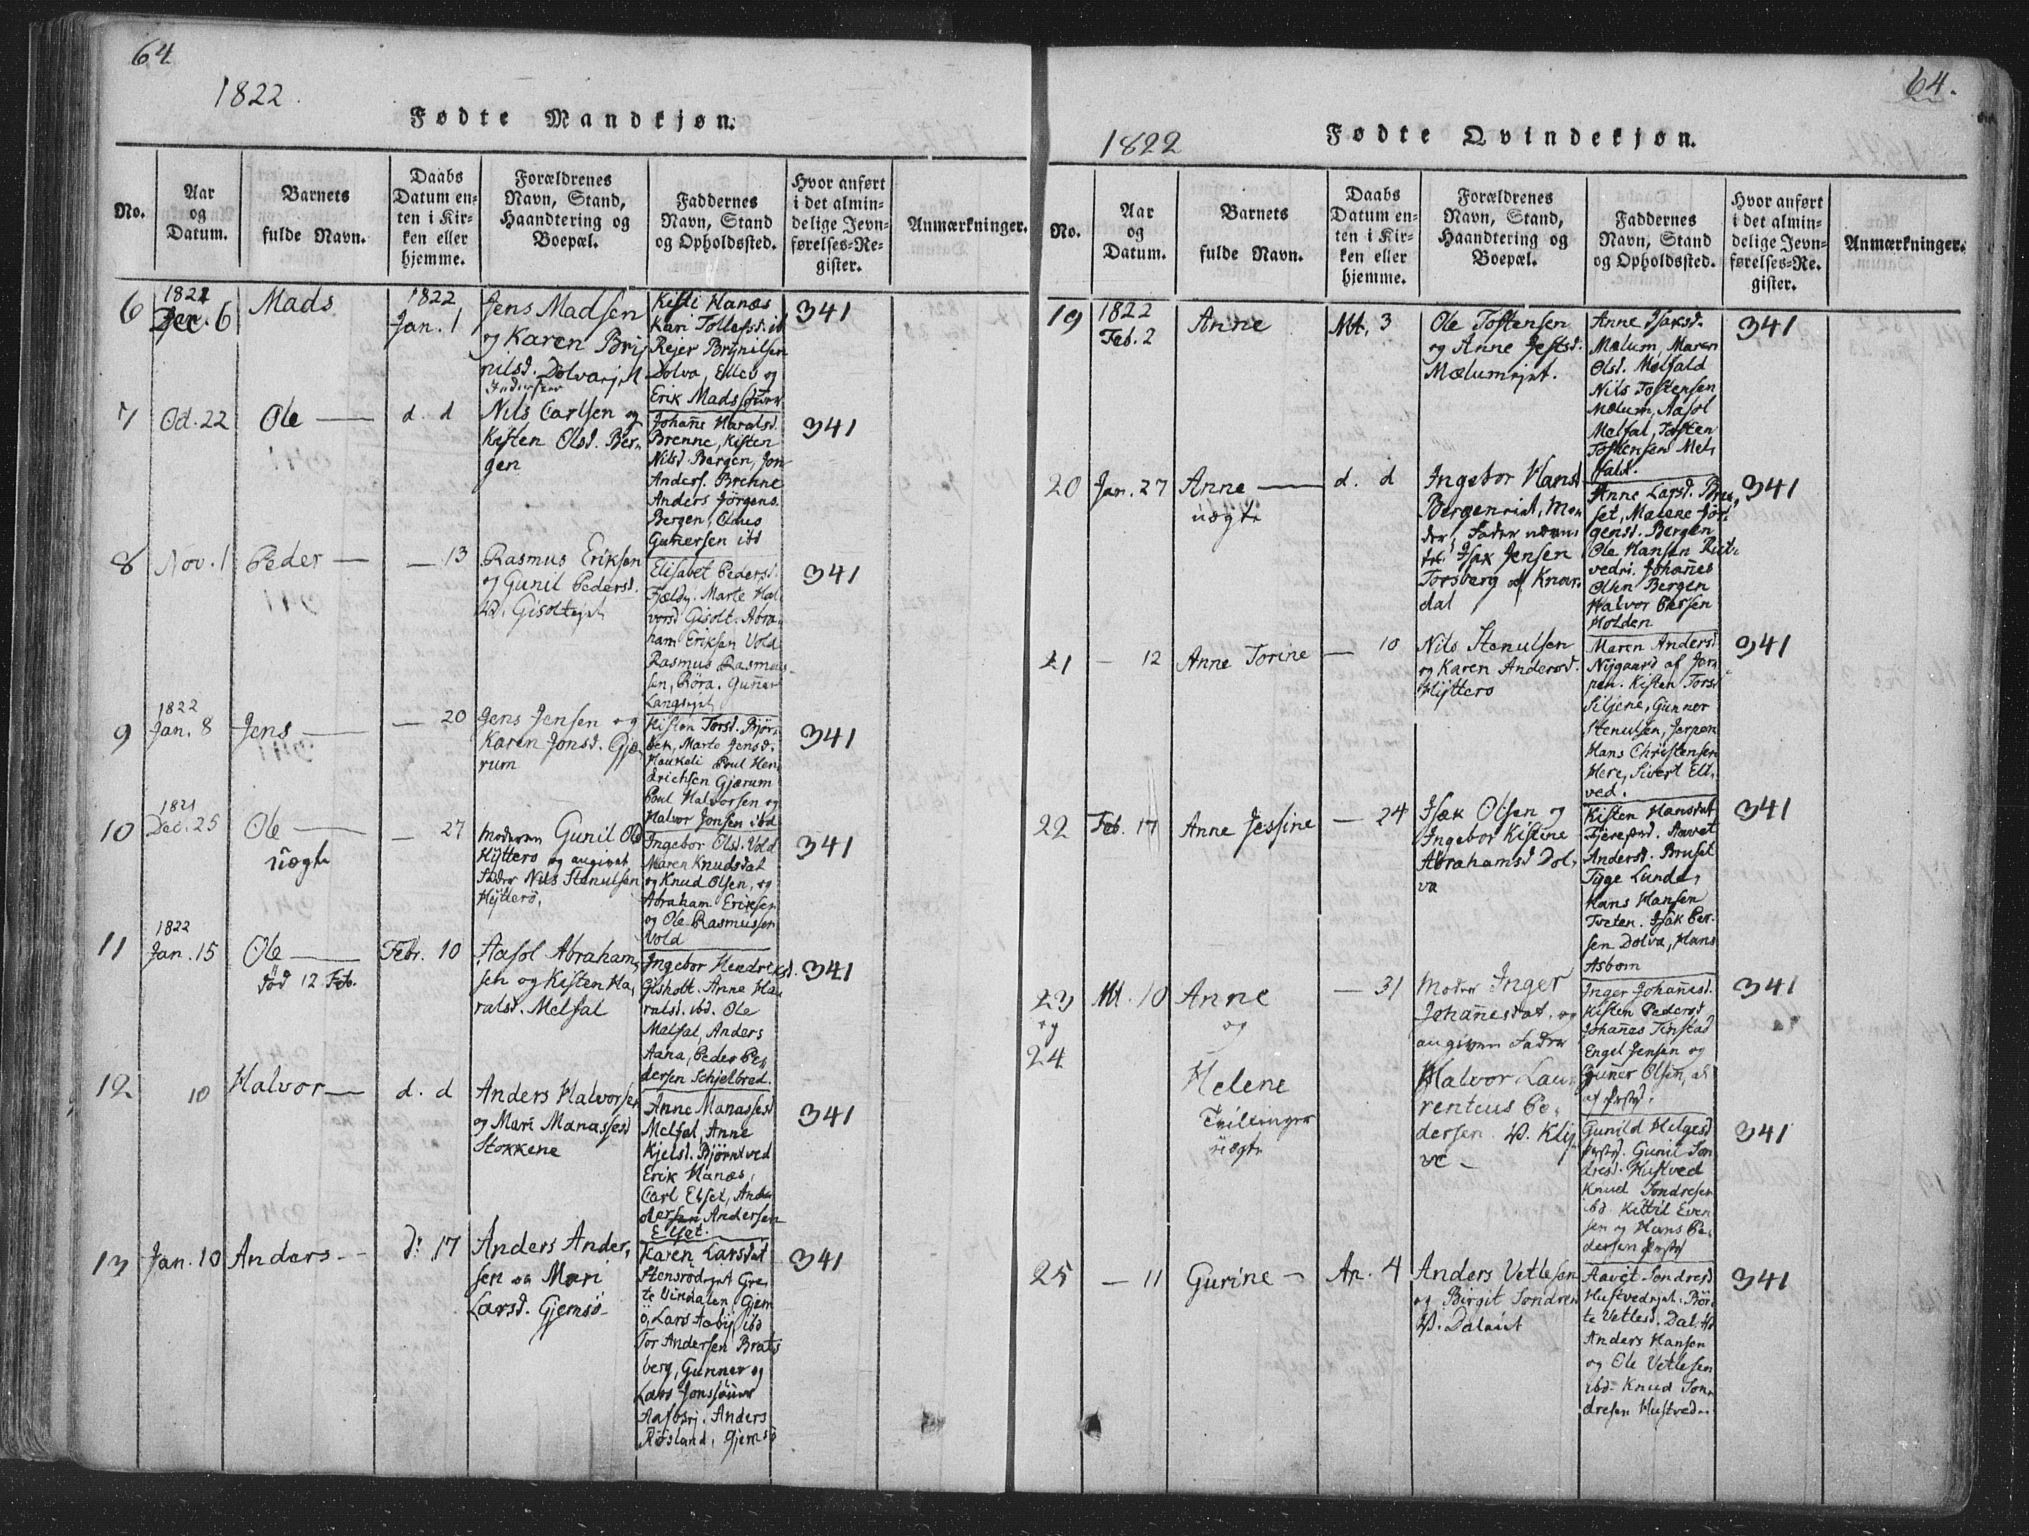 64
1822.
Fødte Mandkjøn.
No.
Aar
og
Datum.
Barnets
fulde Navn.
Daabs
Datum en-
ten i Kir-
ken eller
hjemme.
Forældrenes
Navn, Stand,
Haandtering og
Boepæl.
Faddernes
Navn, Stand
og Opholdssted.
Hvor anført
i det almin-
delige Jevn-
førelses-Re-
gister.
Anmærkninger.
6
1821
Dec. 6
Mads
1822
Jan. 1
Jens Madsen
og Karen Bry
nilsd. Dolvaejet
Kari Tollefsd. ib
Rejer Brynilsen
Dolva, Ellev og
Erik Mads
341
7
Od. 22
Ole
d. d
Nils Carlsen og
Kisten Olsd. Ber-
gen
Johañe Haralsd.
Brenne, Kisten
Nilsd Bergen, Jon
Anders. Brenne
Anders Jørgens.
Bergen, Claus
Guñersen ibd
341
8
Nov. 1
Peder
13
Rasmus Eriksen
og Gunil Pedersd.
Gisoltejet
Elisabet Pedersd.
Marte Hal
vorsd Gisolt. Abra
ham Eriksen Vold
Rasmus Rasmus
sen, Røra. Guñer
341
9
1822
Jan. 8
Jens
20
Jens Jensen og
Karen Jonsd. Gjæ
rum
Kisten Torsd. Bjør
bek, Marte Jensd.
Haukeli Poul Hen
drichsen Gjærum
Poul Halvorsen og
Halvor Jonsen ibd
341
10
1821
Dec. 25
Ole
uægte
27
Moderen Gunil Ols
Hyttero og angivet
Fader Nils Stenulsen
Hyttero,
Ingebor Olsd. Vold
Maren Knudsdat
og Knud Olsen, og
Abraham Eriksen
og Ole Rasmussen
Vold
341
11
1822
Jan. 15
Ole
død 12 Feb.
Febr. 10
Aasol Abraham,
sen og Kisten Ha,
ralsd. Melfal
Ingebor Hendriksd.
Gisholt. Anne Ha
ralsd. ibd. Ole
Melfal, Anders
Aana, Peder Pe,
dersen Schjelbred.
341
12
10
Halvor
d. d
Anders Halvorsen
og Mari Manassesd
Stokkene
Anne Manassesd
Melfal, Anne
Kjelsd. Bjørntved
Erik Hanæs,
Carl Elset, An
dersen Andersen
Elset.
341
13
Jan. 10
Anders
d: 17
Anders Ander,
sen og Mari
Larsd. Gjemsø
Karen Larsdat
Stensrodejet Gre,
te Vindalen, Gjem
ö, Lars Aaby ibd
Tor Andersen Brats
berg, Gunner og
Lars
Anders
Røsland, Gjemsø
341
64.
1822
Fødte Qvindekjøn.
No.
Aar
og
Datum.
Barnets
fulde Navn.
Daabs
Datum en-
ten i Kir-
ken eller
hjemme.
Forældrenes
Navn, Stand,
Haandtering og
Boepæl.
Faddernes
Navn, Stand
og Opholdssted.
Hvor anført
i det almin-
delige Jevn-
førelses-Re-
gister.
Anmærkninger.
19
1822
Feb. 2
Anne
Mt. 3
Ole Tostensen
og Anne Jestsd.
Mælumejet.
Anne Isaksd.
Mælum, Maren
Olsd. Melfald
Nils Tostensen
Mælum, Aasol
Melfal, Tosten
Tostensen Mel,
fald.
341
20
Jan. 27
Anne
uægte
d. d
Ingebor Hansd
Bergen Mo
der, Fader
Isax Jensen
Torsberg af Knar
dal
Anne Larsd. Bru,
set, Malene Jør
gensd. Bergen
Ole Hansen
Johañes
Olsen Bergen
Halvor Persen
Holden
341
21
12
Anne Torine
10
Nils Stenulsen
og Karen Andersd.
Hyttero
Maren Andersd
Nygaard af Jer
pen. Kisten Torsd
Siljene, Gunner
Stenulsen, Jerpen
Hans Christensen
Here, Sivert Ell,
ved.
341
22
Feb. 17
Anne Jessine
24
Isak Olsen og
Ingebor Kistine
Abrahamsd Dol,
va
Kisten Hansdat
Aavet
Andersd. Bruset
Tyge Lunde,
Hans Hansen
Tveten. Isak Per
sen Dolva, Hans
Asbom
341
23
og
24
Mt. 10
Anne
og
Helene
Tvillinger
uægte
31
Moder Inger
Johañesdat, og
angiven Fader
Halvor Lau
rentius Pe,
dersen. Kly
ve
Inger Johañesd.
Kisten Pedersd
Johañes Tinstad
Engel Jensen og
Guñer Olsen, al
341
Gunild Helgesd
Gunil Son
dresd. Hustved
Knud Sondresen
ibd Kittil Even
sen og Hans Pe,
dersen
341
25
11
Gurine
Ap. 4
Anders Vetlesen
og Birgit Sondresd
Aavet Sondresd
te Vetlesd. Dal.
Anders Hansen
og Ole Vetlesen
ibd. Knud Son
dresen Hustved
341